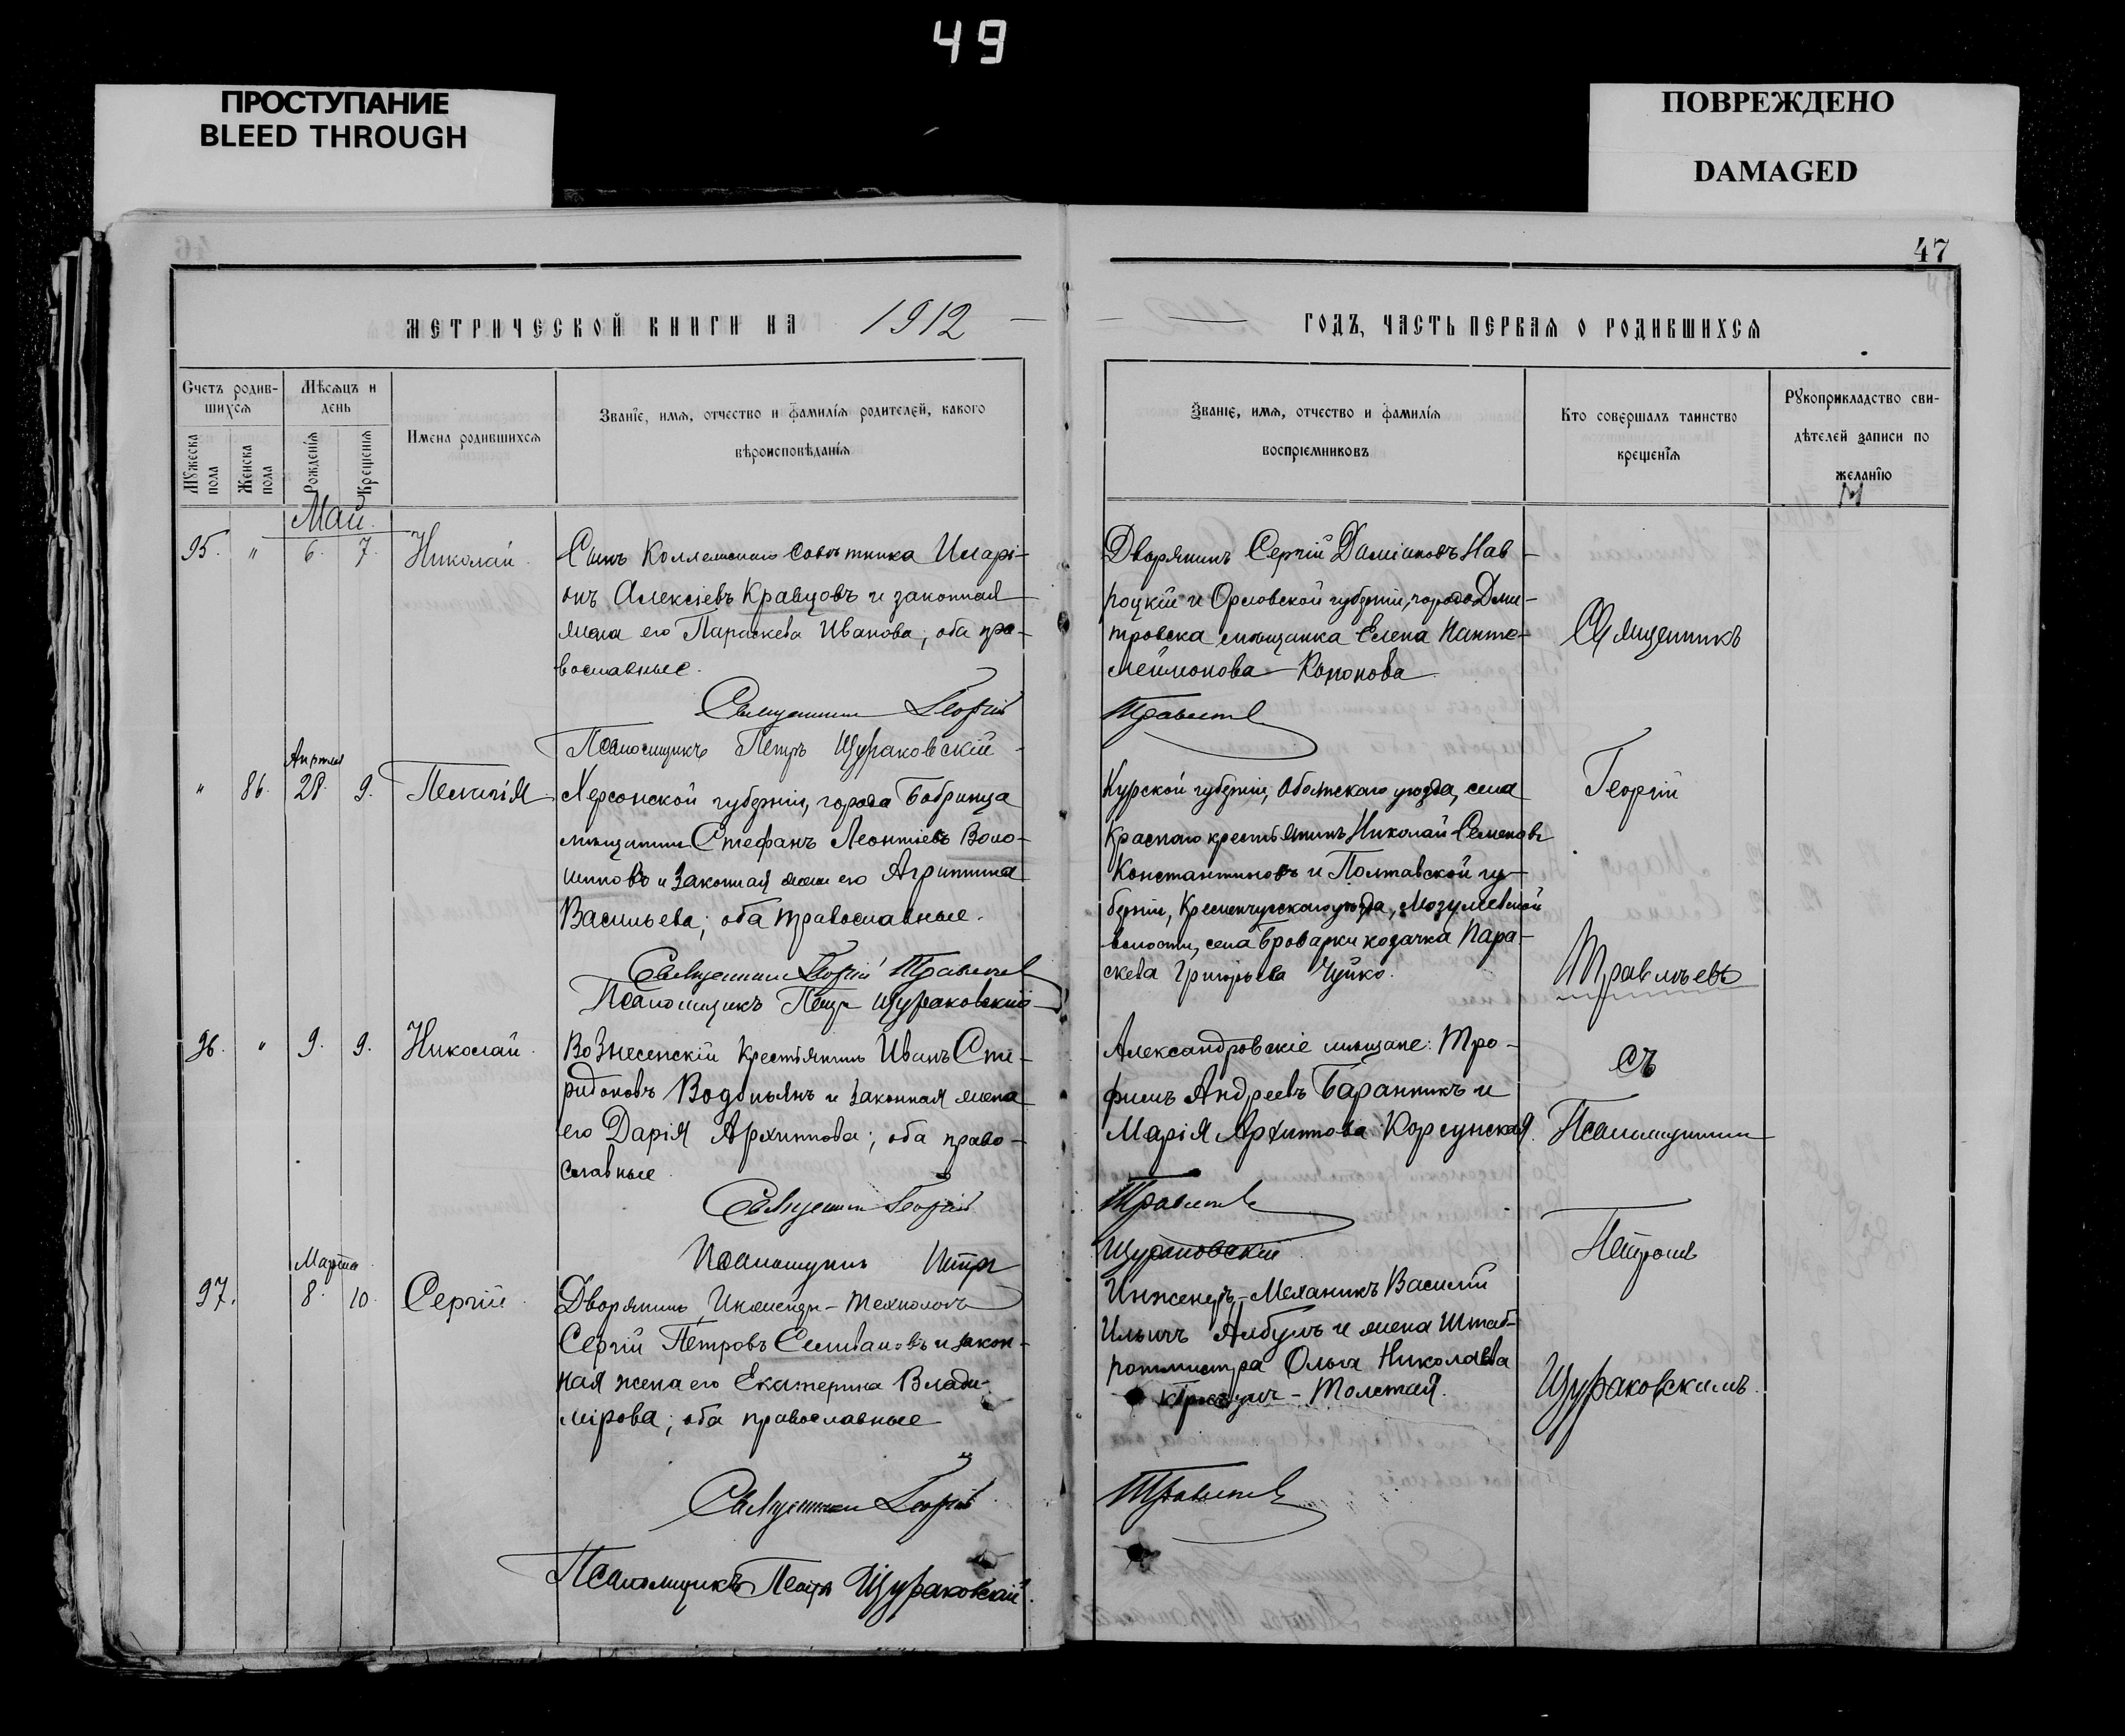 49
ПРОСТУПАНИЕ
BLEED THROUGH
ПОВРЕЖДЕНО
DAMAGED
47
МЕТРИЧЕСКОЙ КНИГИ НА 1912
ГОДЪ, ЧАСТЬ ПЕРВАЯ О РОДИВШИХСЯ
Счетъ родив-
шихся
Мужеска пола
Женска пола
Мѣсяцъ и
день
Рожденія
Крещенія
Имена родившихся
Званіе, имя, отчество и фамилія родителей, какого
вѣроисповѣданія
Званіе, имя, отчество и фамилія
воспріемниковъ
Кто совершалъ таинство
крещенія
Рукоприкладство сви-
дѣтелей записи по
желанію
Май
95. " 6. 7. Николай.
Сынъ Коллежскаго Совѣтника Иларі-
онъ Алексіевъ Кравцовъ и законная
жена его Параскева Иванова; оба пра-
вославные.
Священникъ Георгій
Псаломщикъ Петръ Щураковскій
Дворянинъ Сергій Даміановъ Нав-
роцкій и Орловской губерніи, города Дми-
тровска мѣщанка Елена Панте-
леймонова Кононова
Травлѣевъ
Священникъ
Апрѣля
" 86. 28. 9. Пелагія
Херсонской губерніи, города Бобринца
мѣщанинъ Стефанъ Леонтіевъ Воло-
шиновъ и законная жена его Агриппина
Васильева; оба православные.
Священникъ Георгій Травлѣевъ
Псаломщикъ Петръ Щураковскій
Курской губерніи, Обоянскаго уѣзда, села
Краснаго крестьянинъ Николай Семеновъ
Константиновъ и Полтавской гу-
берніи, Кременчугскаго уѣзда,
волости, села Броварки козачка Пара-
скева Григорьева Чуйко.
Георгій
Травлѣевъ
96. " 9. 9. Николай.
Вознесенскій крестьянинъ Иванъ Спи-
ридоновъ Водопьянъ и законная жена
его Дарія Архиппова; оба право-
славные
Священникъ Георгій
Псаломщикъ Петръ
Александровскіе мѣщане: Тро-
фимъ Андреевъ Баранникъ и
Марія Архиппова Корсунская.
Травлѣевъ
Щураковскій
съ
Псаломщикомъ
Петромъ
Марта
97. 8. 10. Сергій.
Дворянинъ, Инженеръ-Технологъ
Сергій Петровъ Селивановъ и закон-
ная жена его Екатерина Влади-
мірова; оба православные
Священникъ Георгій
Псаломщикъ Петръ Щураковскій.
Инженеръ-Механикъ Василій
Ильичъ Албулъ и жена Штаб-
ротмистра Ольга Николаева
Толстая.
Травлѣевъ
Щураковскимъ.